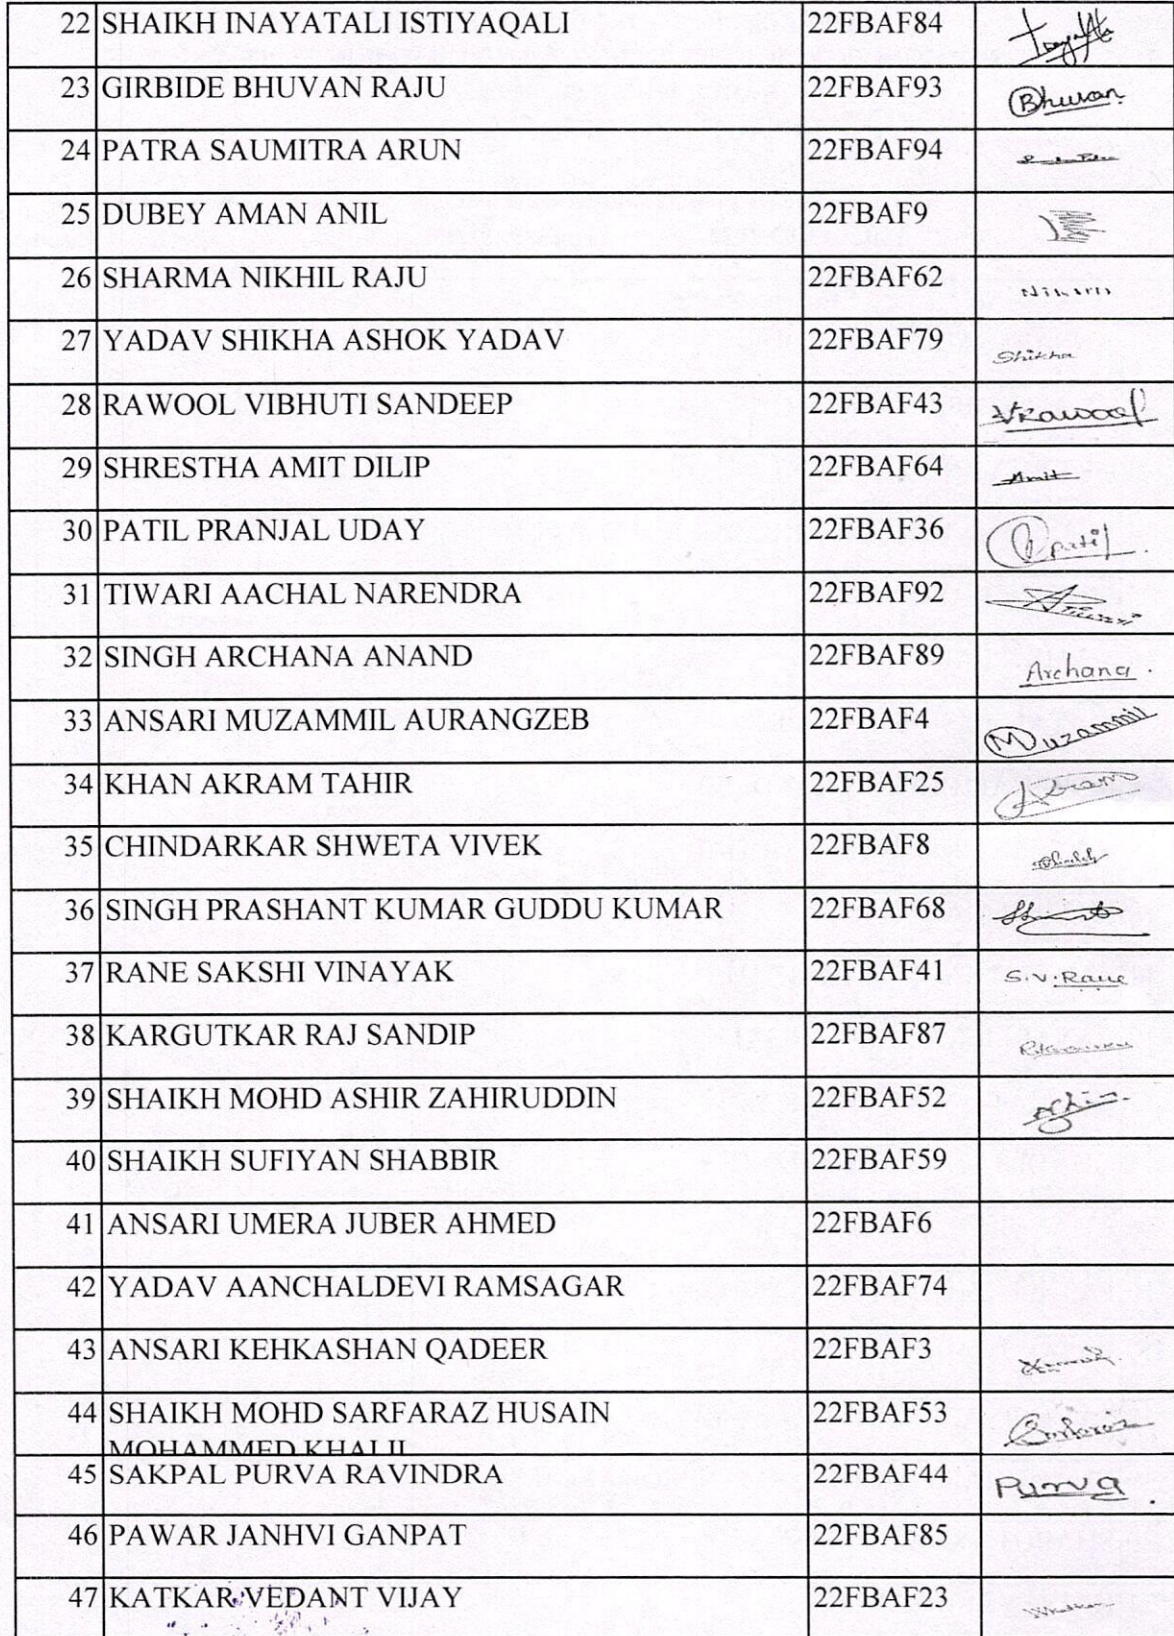 22 SHAIKH INAYATALI ISTIYAQALI 22FBAF84
23 GIRBIDE BHUVAN RAJU 22FBAF93 Bhuvan
24 PATRA SAUMITRA ARUN 22FBAF94
25 DUBEY AMAN ANIL 22FBAF9
26 SHARMA NIKHIL RAJU 22FBAF62
27 YADAV SHIKHA ASHOK YADAV 22FBAF79 Shikha
28 RAWOOL VIBHUTI SANDEEP 22FBAF43 VRawool
29 SHRESTHA AMIT DILIP 22FBAF64 Amit
30 PATIL PRANJAL UDAY 22FBAF36 Ppatil
31 TIWARI AACHAL NARENDRA 22FBAF92
32 SINGH ARCHANA ANAND 22FBAF89 Archana.
33 ANSARI MUZAMMIL AURANGZEB 22FBAF4 Muzammil
34 KHAN AKRAM TAHIR 22FBAF25 Akram
35 CHINDARKAR SHWETA VIVEK 22FBAF8
36 SINGH PRASHANT KUMAR GUDDU KUMAR 22FBAF68
37 RANE SAKSHI VINAYAK 22FBAF41 S.V.Rane
38 KARGUTKAR RAJ SANDIP 22FBAF87
39 SHAIKH MOHD ASHIR ZAHIRUDDIN 22FBAF52
40 SHAIKH SUFIYAN SHABBIR 22FBAF59
41 ANSARI UMERA JUBER AHMED 22FBAF6
42 YADAV AANCHALDEVI RAMSAGAR 22FBAF74
43 ANSARI KEHKASHAN QADEER 22FBAF3
44 SHAIKH MOHD SARFARAZ HUSAIN 22FBAF53
MOHAMMED KHALIL
45 SAKPAL PURVA RAVINDRA 22FBAF44 Purva.
46 PAWAR JANHVI GANPAT 22FBAF85
47 KATKAR VEDANT VIJAY 22FBAF23